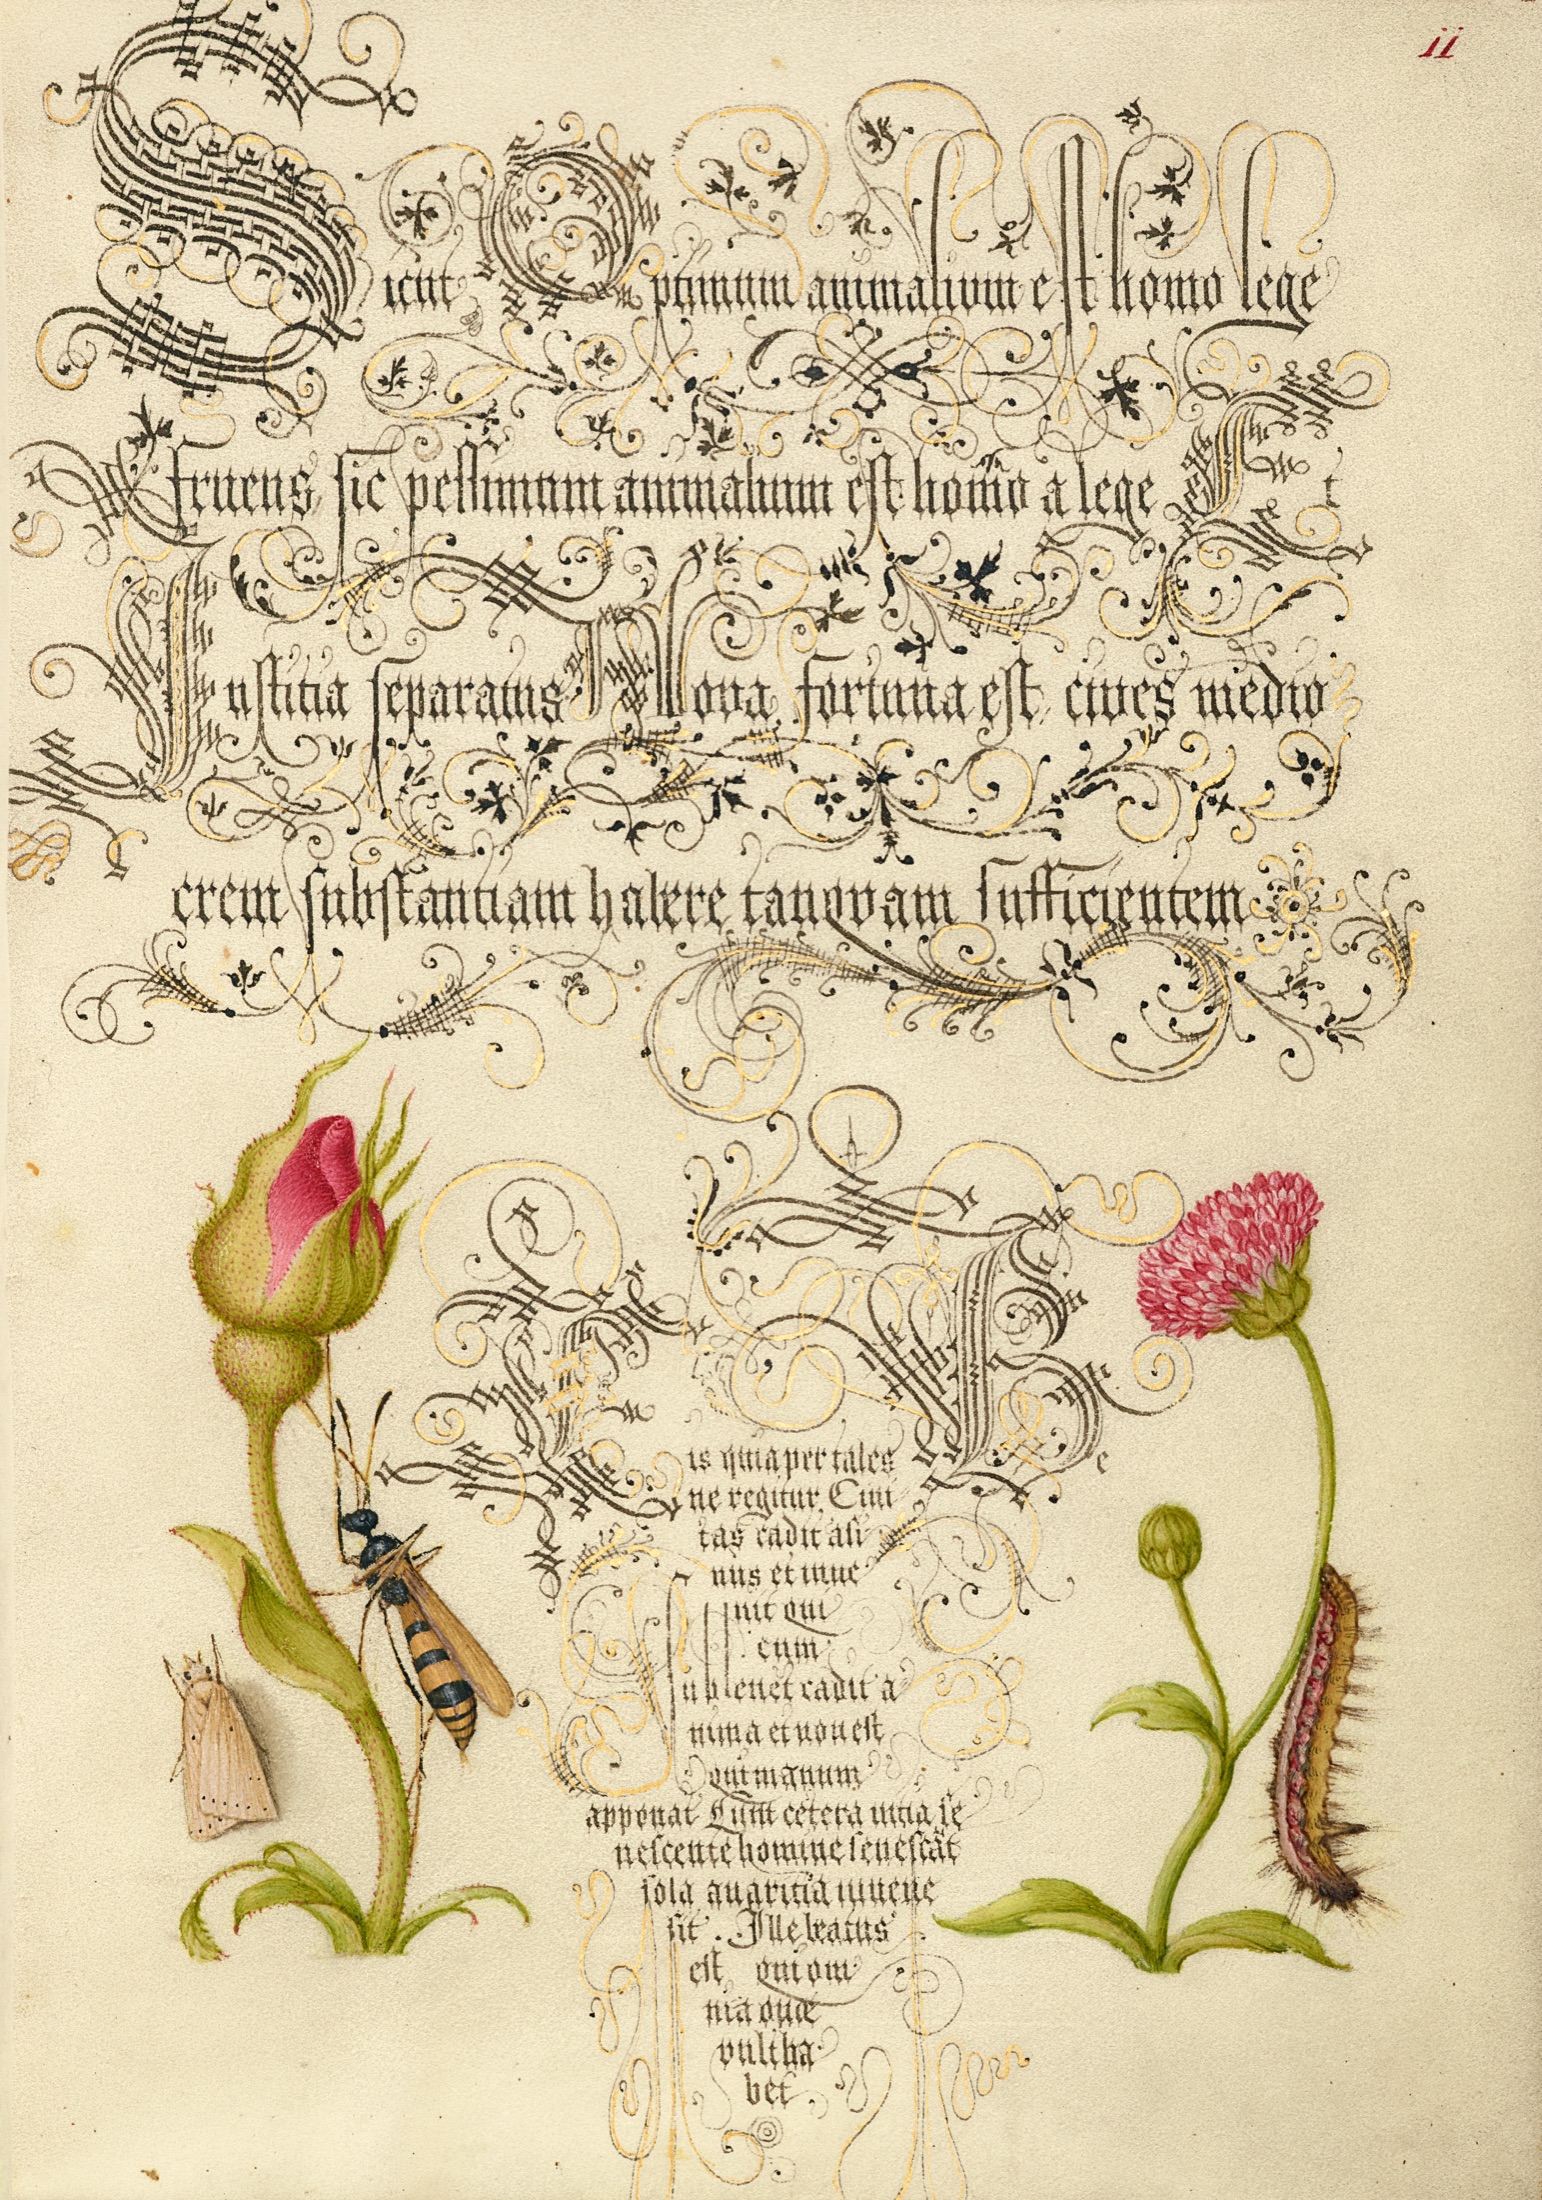 ii
Sicut Optimum animalium est homo lege
fruens, sic pessimum animalium est homo a lege Et
Iustitia separatus Bona fortuna est cives medio
crem substantiam habere tanqvam sufficientem
is quia per tales Be
ne regitur. Civi
tas cadit asi
nus et inve
nit qui
eum
sublevet cadit a
nima et non est
qui manum
apponat Cum cetera vitia se
nescente homine senescāt
sola avaritia iuvene
sit. Ille beatus
est qui om
nia que
vult ha
bet